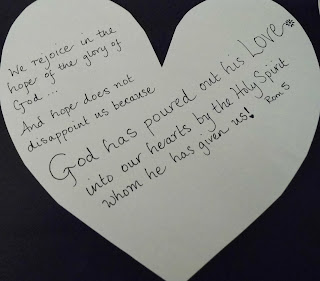 We rejoice in the
hope of the glory of
God...
And hope does not
disappoint us because
God has poured out his Love
into our hearts by the Holy Spirit
whom he has given us!
Rom 5